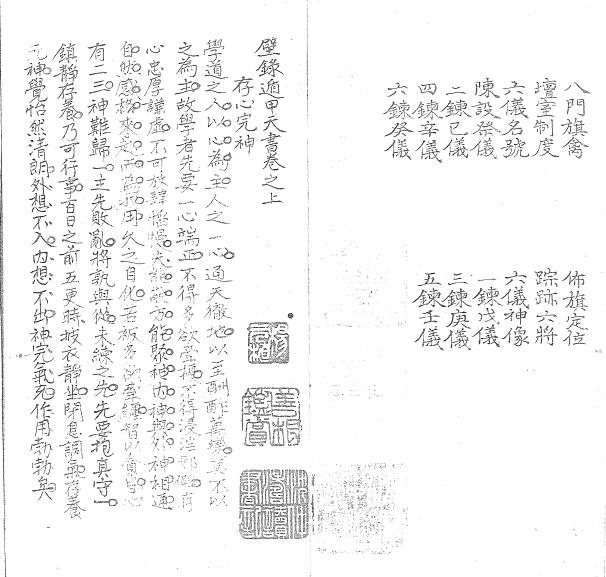 八門旗禽 佈旗定位
壇室制度 踪跡六將
六儀名號 六儀神像
陳設祭儀 一鍊戊儀
二鍊己儀 三鍊庚儀
四鍊辛儀 五鍊壬儀
六鍊癸儀
壁錄遁甲天書卷之上
存心完神
學道之人以心為主人之一心通天徹地以至酬酢萬變莫不以
之為主故學者先要一心端正不得多欲妄想不得浸淫邪僻存
心忠厚謙虛不可放怠慢失敬方能聚神內神與外神相通
自然感格來為我用久之自化若多欲
有二三神難歸一主先敗亂將孰與從未練之先先要抱真守一
鎮靜存養乃可行事百日之前五更時披衣靜坐閉息調氣存養
元神覺怡然清朗外想不入內想不出神完氣充作用勃勃矣